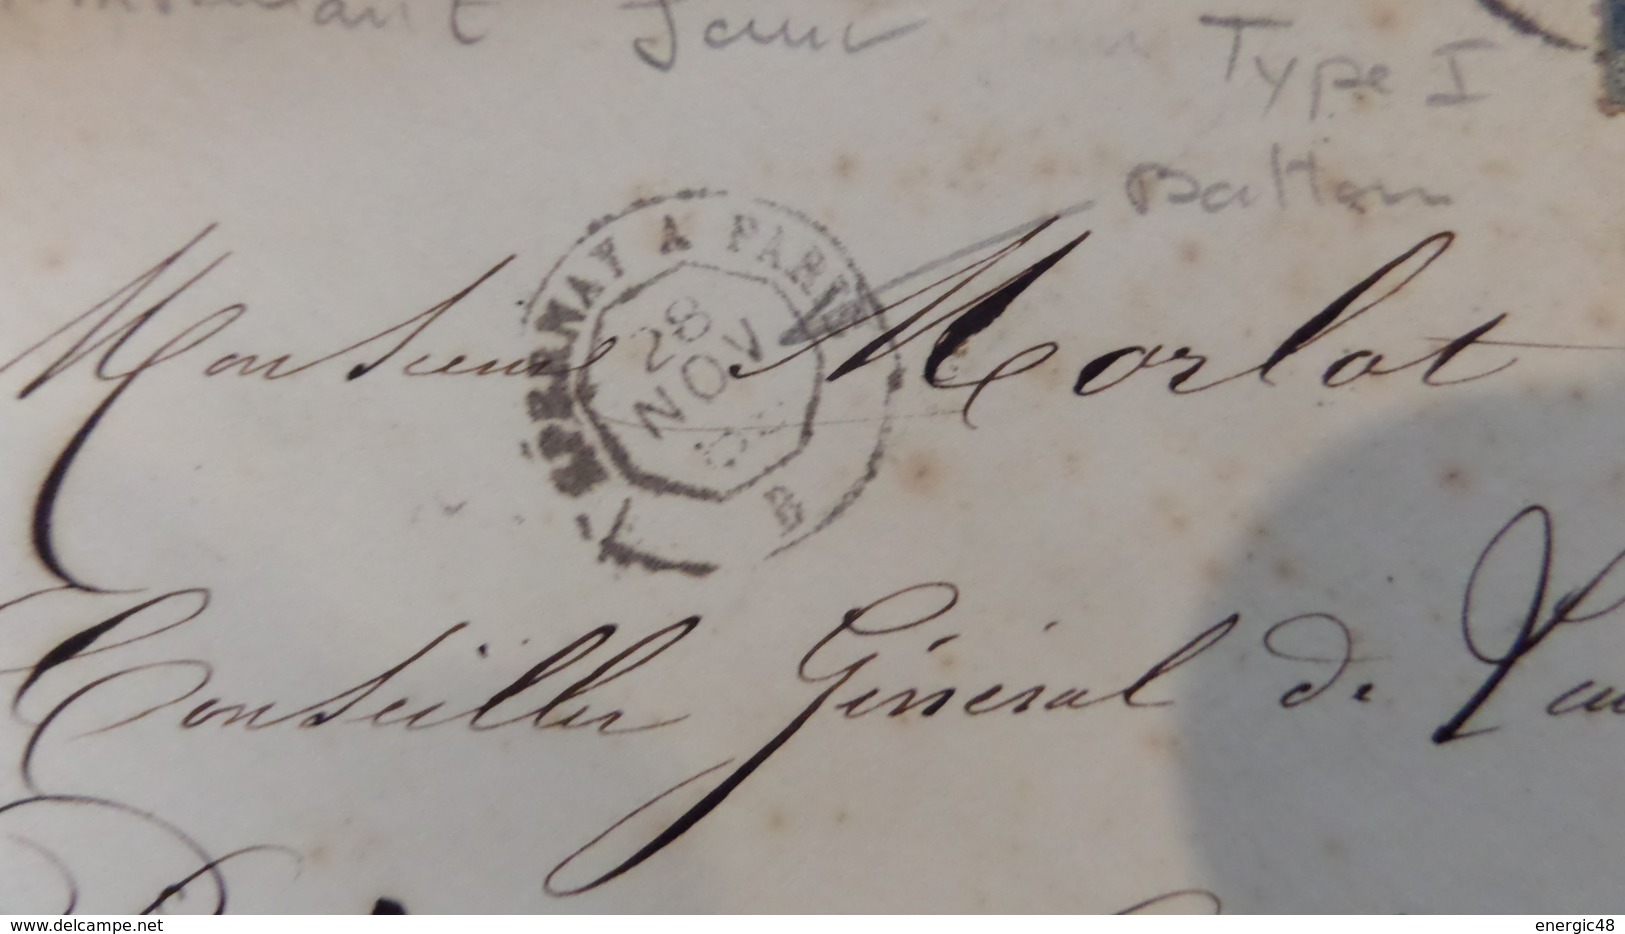 Jour
Type I
EPERNAY A PARIS
28
NOV
B
Monsieur Morlot
Conseiller Général de
delcampe.net
energic48